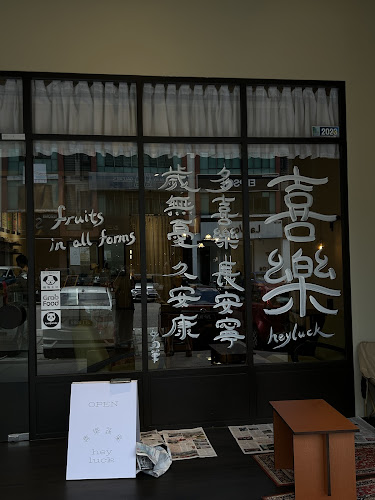 2020
喜樂
heyluck
多喜樂 長安寧
歲無憂 久安康
fruits
in all forms
Grab
Food
OPEN
hey
luck